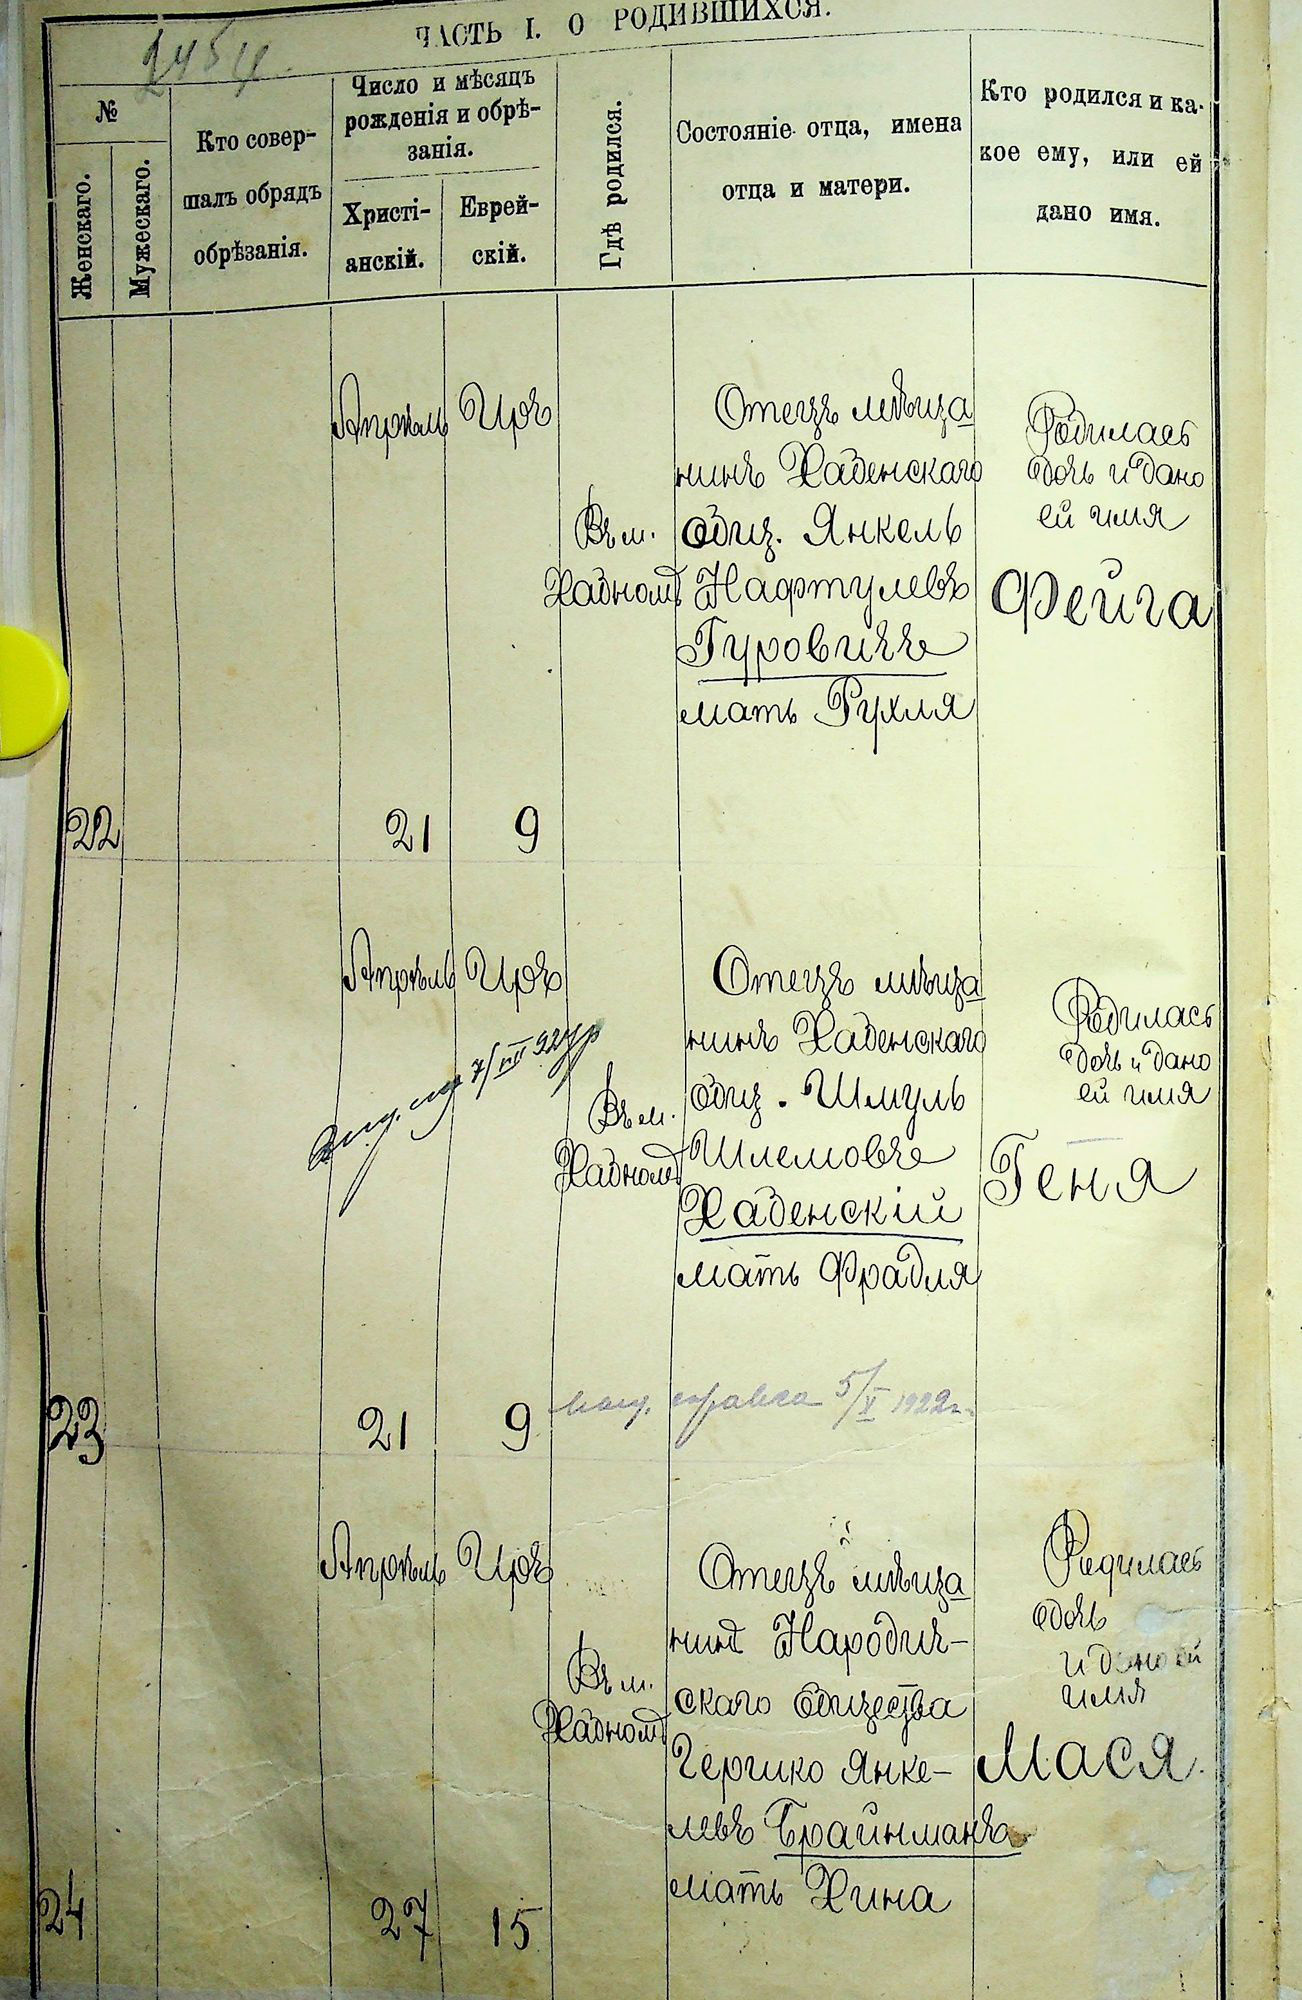 ЧАСТЬ I. О РОДИВШИХСЯ.
2454.
№
Женскаго.
Мужескаго.
Кто совер-
шалъ обрядъ
обрѣзанія.
Число и мѣсяцъ
рожденія и обрѣ-
занія.
Христі-
анскій.
Еврей-
скій.
Гдѣ родился.
Состояніе отца, имена
отца и матери.
Кто родился и ка-
кое ему, или ей
дано имя.
22
Апрѣль
21
Иръ
9
Въ м.
Хабномъ
Отецъ мѣща
нинъ Хабенскаго
общ. Янкель
Нафтулевъ
Гуровичъ
мать Рухля
Родилась
дочь и дано
ей имя
Фейга
23
Апрѣль
21
Иръ
9
7/VII 924 г
Въ м.
Хабномъ
Отецъ мѣща
нинъ Хабенскаго
общ. Шмуль
Шлемовъ
Хабенскій
мать Фрадля
Родилась
дочь и дано
ей имя
Геня
справка 5/V 1922 г.
24
Апрѣль
27
Иръ
15
Въ м.
Хабномъ
Отецъ мѣща
нинъ Народич-
скаго общества
Гершко Янке-
левъ Брайнманъ
мать Хина
Родилась
дочь
и дано ей
имя
Мася.